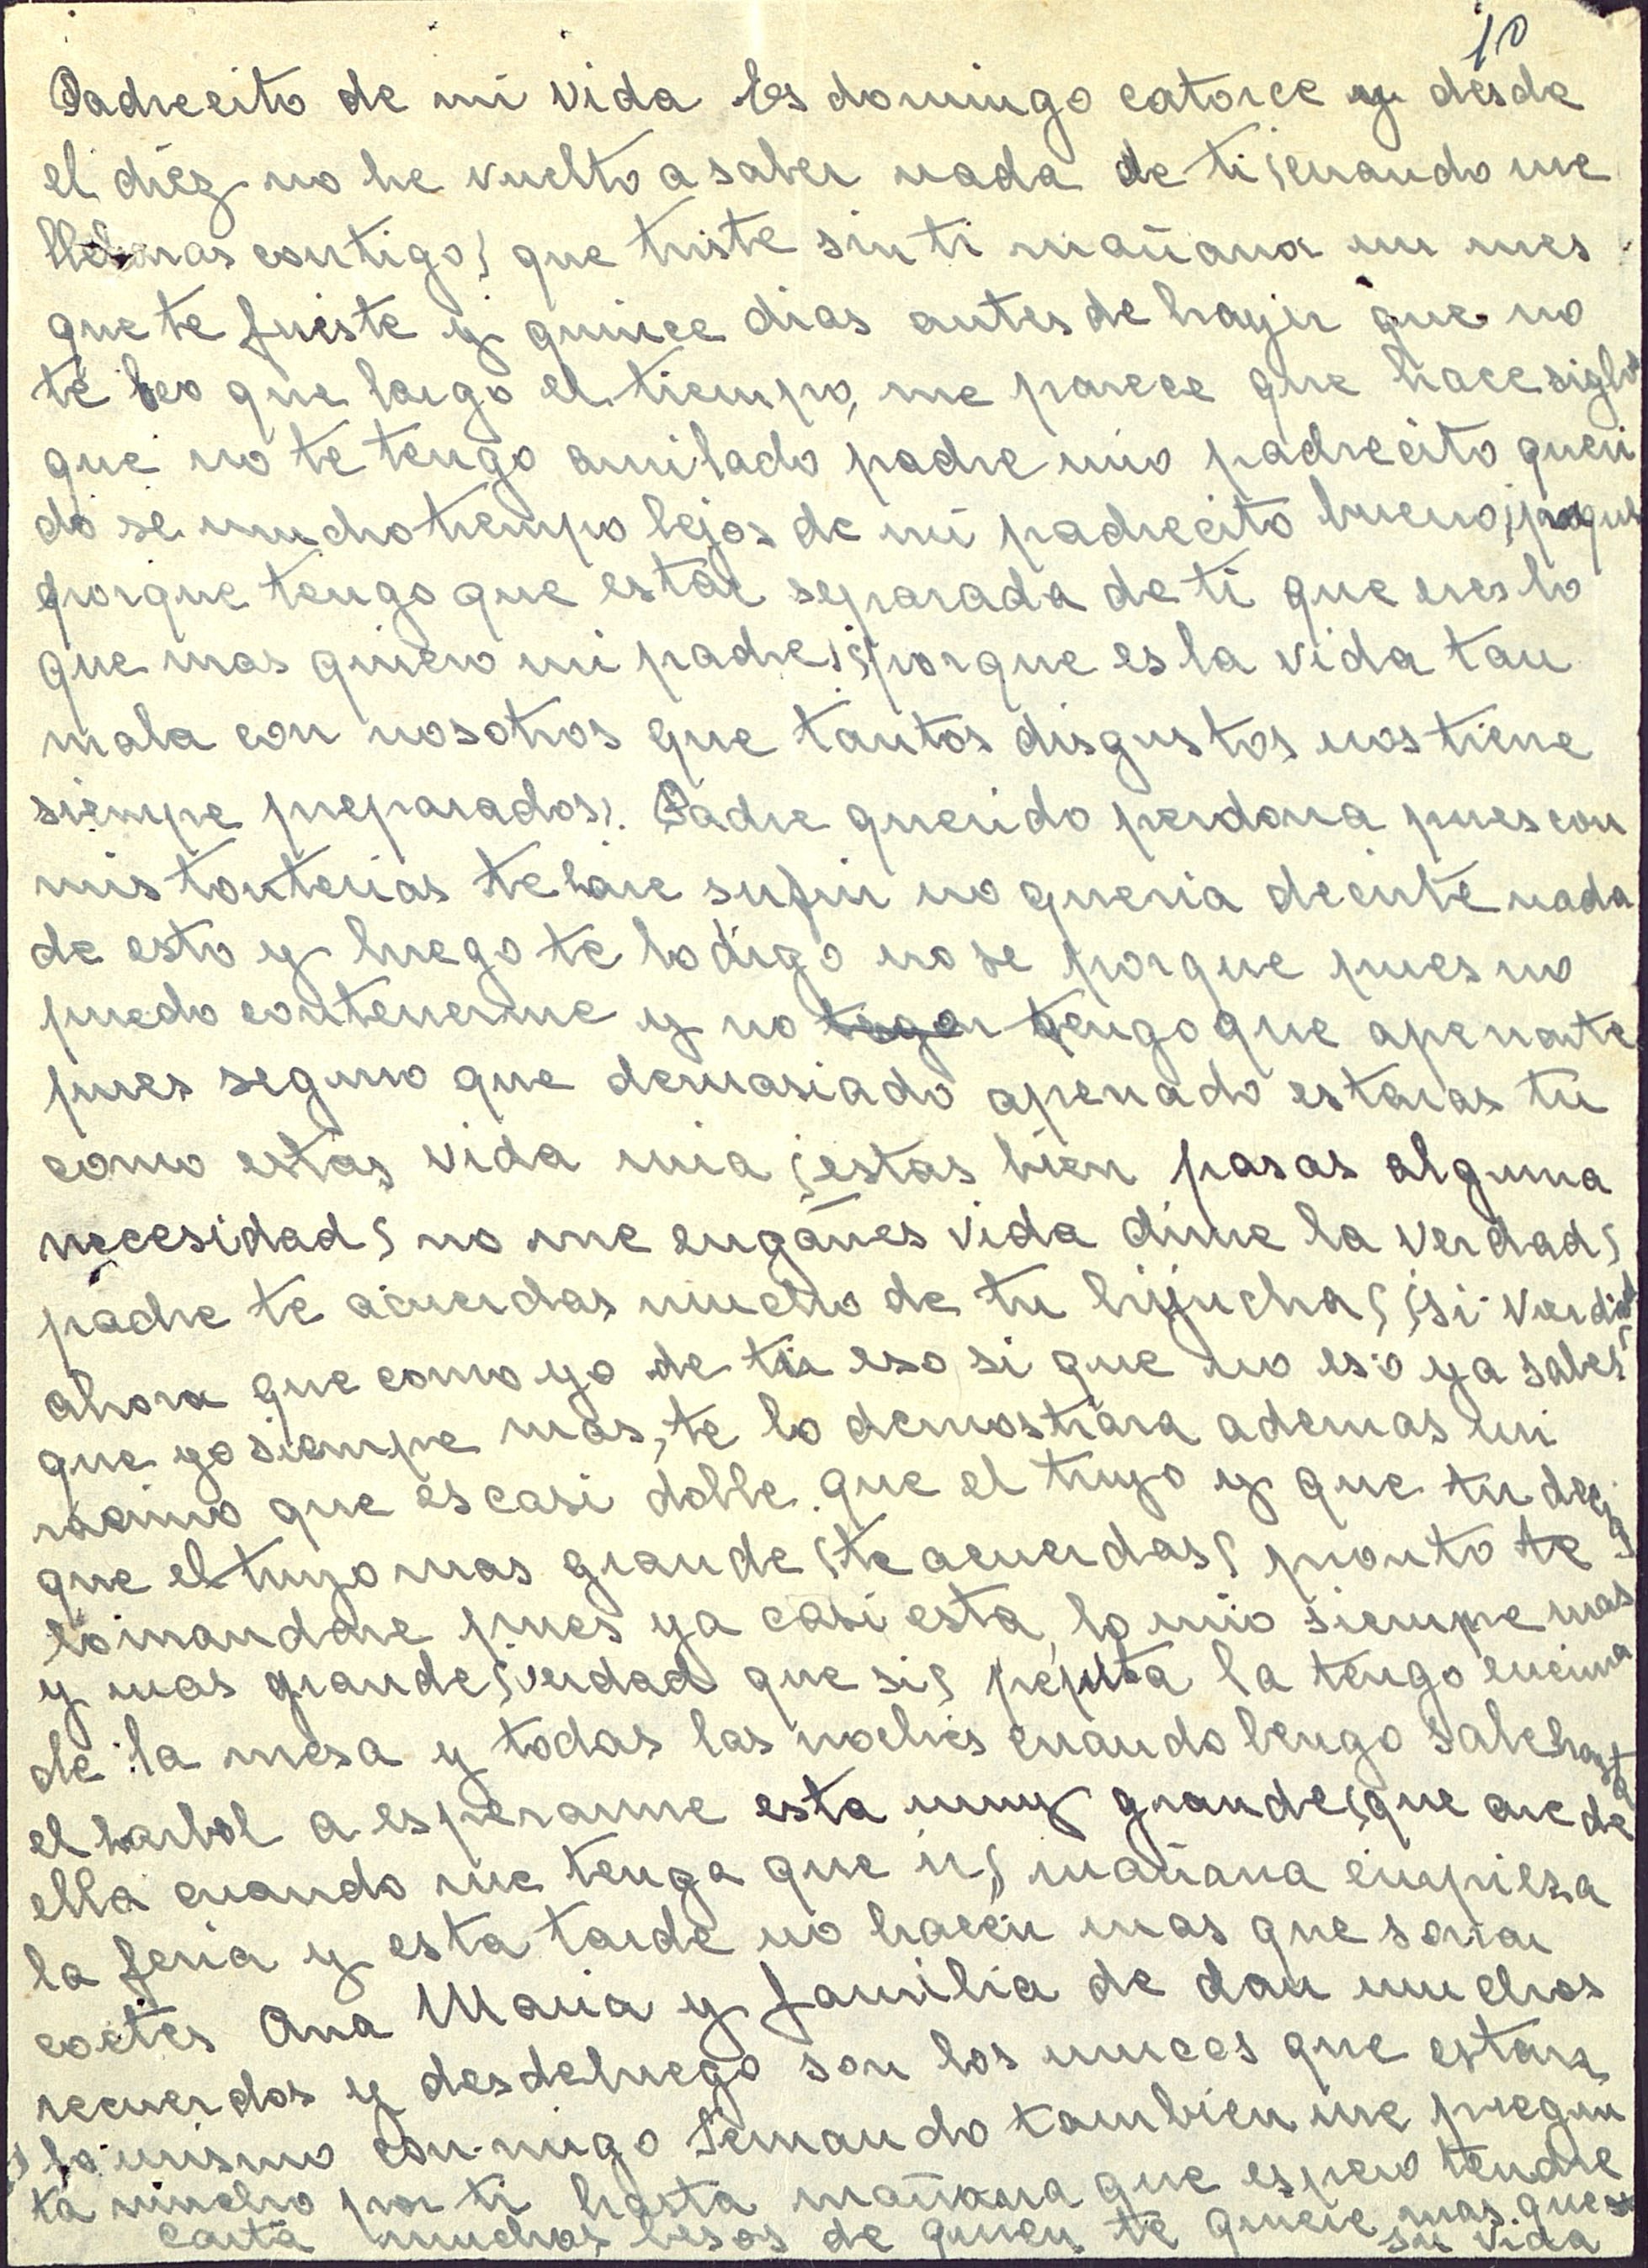 10
Padrecito de mi vida Es domingo catorce y desde
el diez no he vuelto a saber nada de ti ¿cuando me
lleberas contigo? que triste sin ti mañana un mes
que te fuiste y quince dias antes de hayer que no
te beo que largo el tiempo, me parece que hace siglos
que no te tengo ami lado padre mio padrecito queri
do se mucho tiempo lejos de mi padrecito bueno ¿porque
porque tengo que estar separada de ti que eres lo
que mas quiero mi padre? ¿porque es la vida tan
mala con nosotros que tantos disgustos nos tiene
siempre preparados?. Padre querido perdona pues con
mis tonterias te hare sufrir no queria decirte nada
de esto y luego te lo digo no se porque pues no
puedo contenerme y no tengo que apenarte
pues seguro que demasiado apenado estaras tu
como estas vida mia ¿estas bien pasas alguna
necesidad? no me engañes vida dime la verdad?
padre te acuerdas mucho de tu hijucha? ¿si verdad
ahora que como yo de tu eso si que no eso ya sabes
que yo siempre mas, te lo demostrara ademas mi
racimo que es casi doble que el tuyo y que tu decias
que el tuyo mas grande ¿te acuerdas? pronto te
lo mandare pues ya casi esta, lo mio siempre mas
y mas grande ¿verdad que si? pepita la tengo encima
de la mesa y todas las noches cuando bengo sale hasta
el harbol a esperarme esta muy grande ¿que are de
ella cuando me tenga que ir? mañana empieza
la feria y esta tarde no hacen mas que sonar
coetes Ana Maria y familia de dan muchos
recuerdos y desdeluego son los unicos que estan
lo mismo con migo Fernando tambien me pregun
ta mucho por ti hasta mañana que espero tendre
carta muchos besos de quien te quiere mas que a
su vida